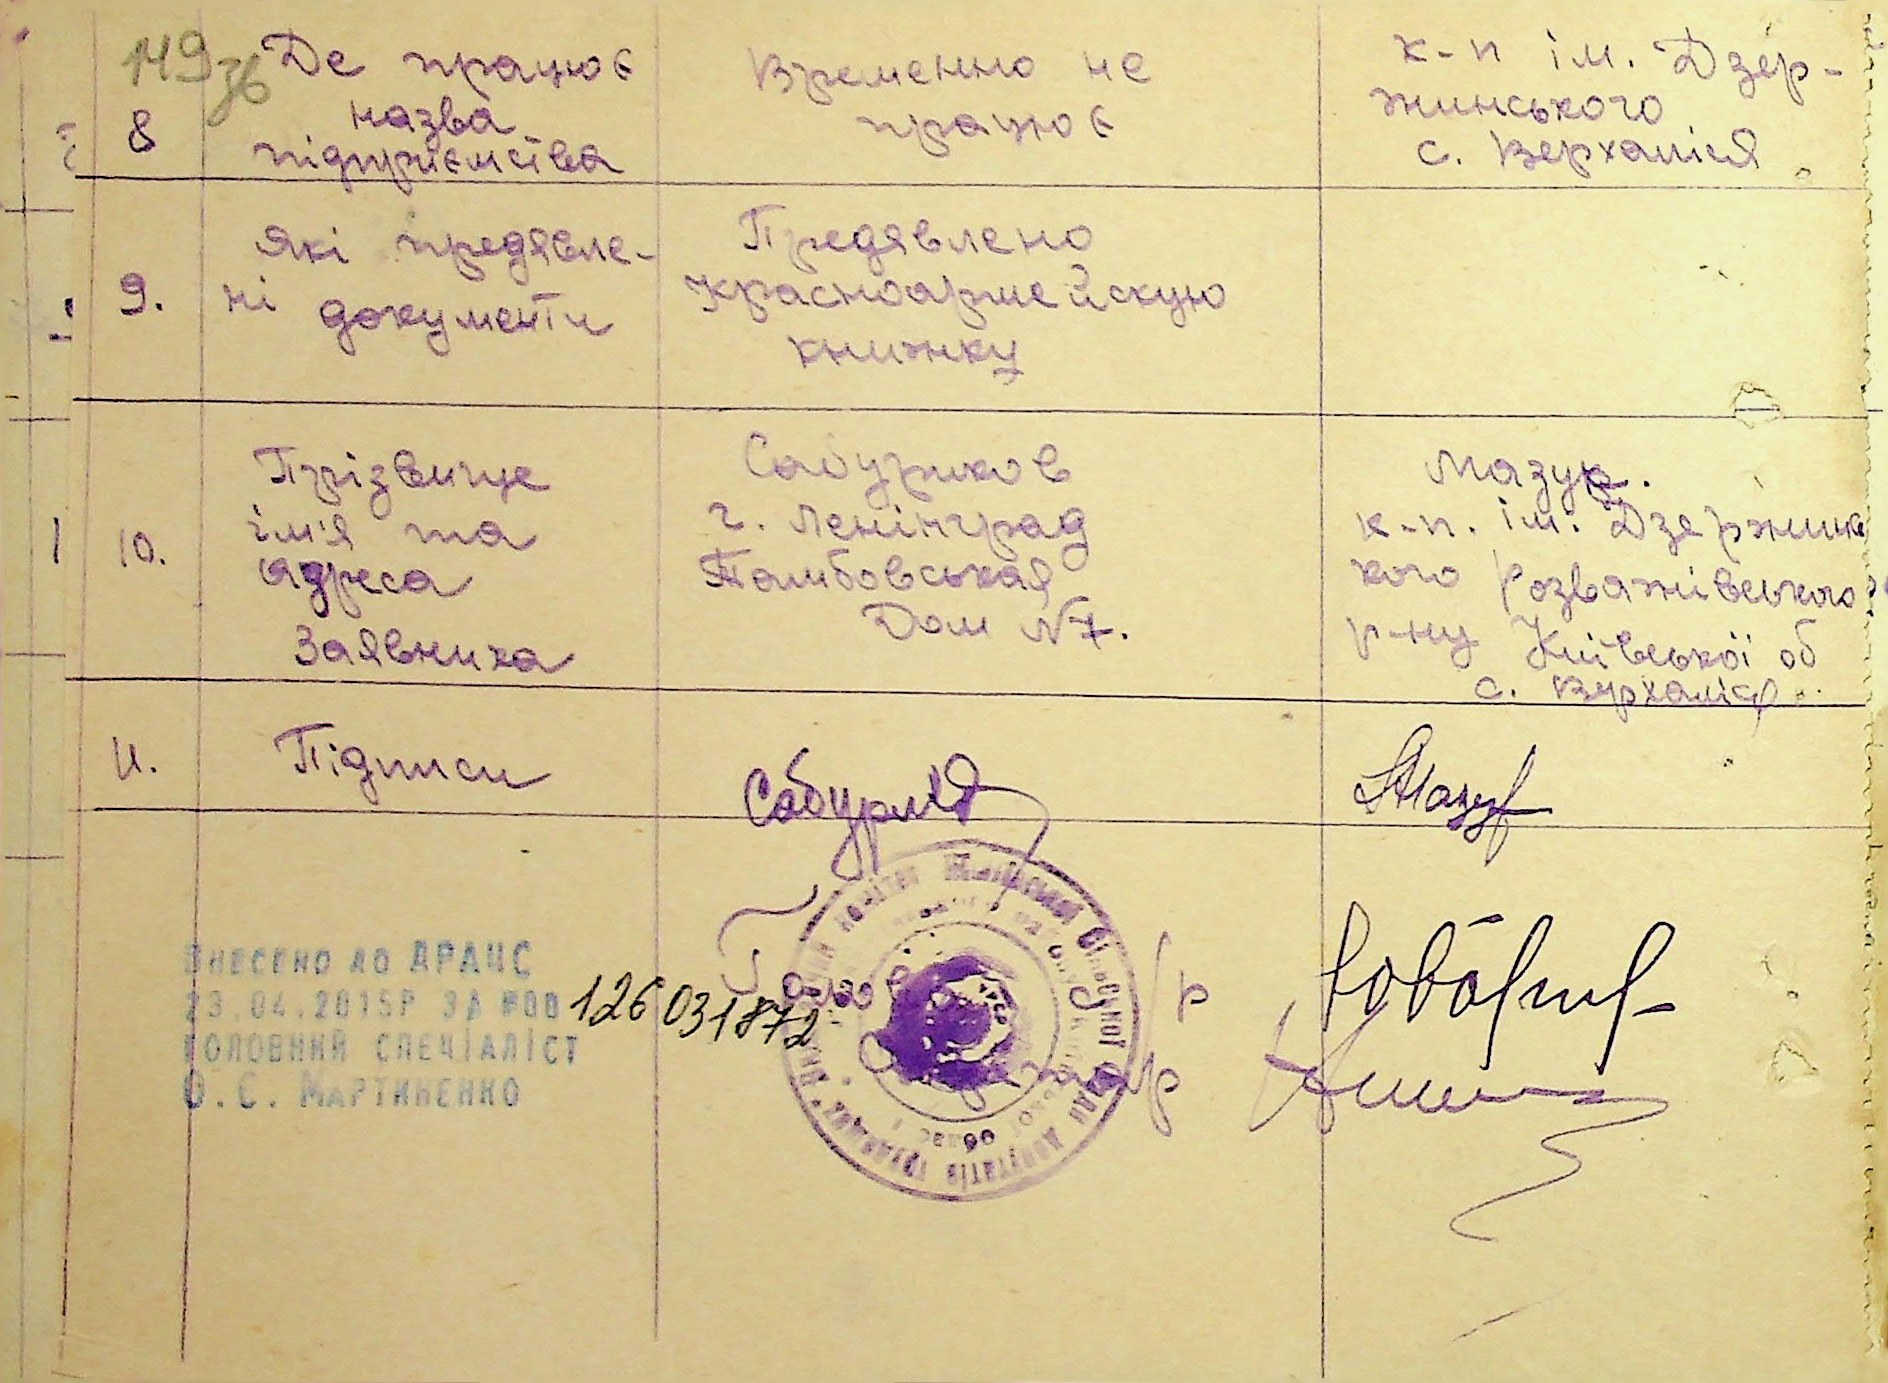 149зв
8
Де працює
назва
підприємства
Временно не
працює
к-п ім. Дзер-
жинського
с. Верхалісся
9.
Які предявле-
ні документи
Предявлено
красноармейскую
книжку
10.
Прізвище
ім'я та
адреса
Заявника
г. Ленінград
Тамбовськая
Дом №7.
Мазур.
к-п. ім. Дзержинс
кого Розважівського
р-ну Київської об
с. Верхалісся
11.
Підписи
Мазур
Внесено до ДРАЦС
23.04.2015р за №00126031872
Головний спеціаліст
О.С. Мартиненко